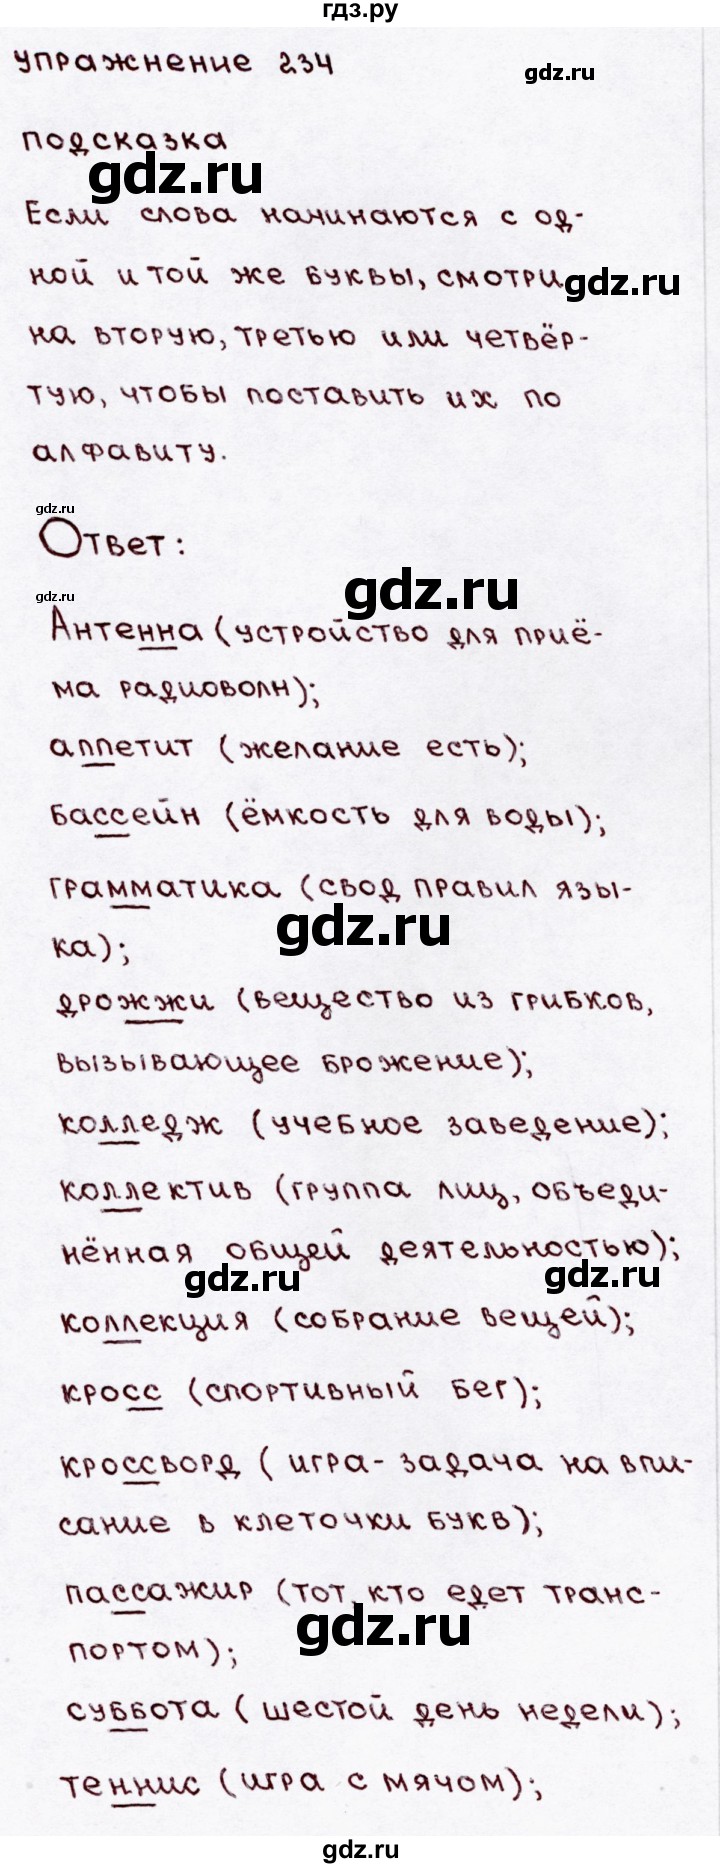 гдз.ру
упражнение 234
gdz.ru
подсказка
gdz.ru
Если слова начинаются с од-
ной и той же буквы, смотри
gdz.ru
на вторую, третью или четвёр-
тую, чтобы поставить их по
алфавиту.
gdz.ru
Ответ:
gdz.ru
gdz.ru
Антенна (устройство для приё-
ма радиоволн);
аппетит (желание есть);
gdz.ru
бассейн (ёмкость для воды);
грамматика (свод правил язы-
gdz.ru
ка);
дрожжи (вещество из грибков,
вызывающее брожение);
колледж (учебное заведение);
коллектив (группа лиц, объеди-
нённая общей деятельностью);
gdz.ru
gdz.ru
коллекция (собрание вещей);
кросс (спортивный бег);
кроссворд (игра-задача на впи-
сание в клеточки букв);
пассажир (тот, кто едет транс-
gdz.ru
портом);
суббота (шестой день недели);
теннис (игра с мячом);
gdz.ru